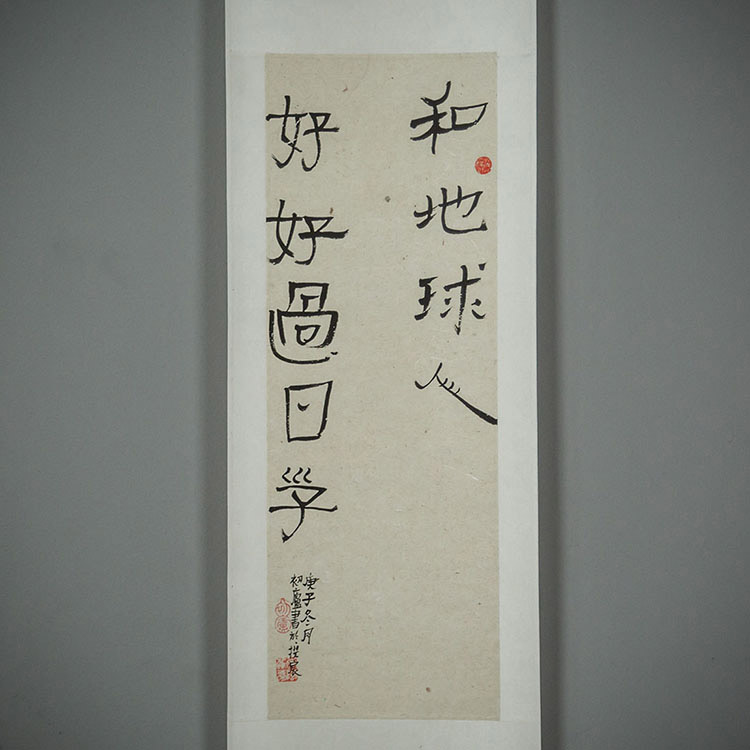 和地球人
好好過日子
庚子冬月
書於